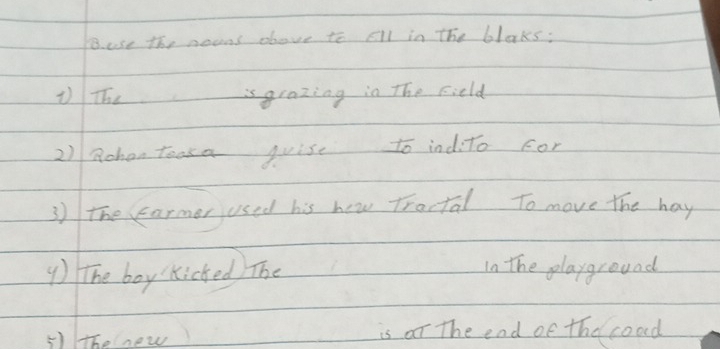 B. use the nouns above to fill in the blaks:
1) The is grazing in The Field
2) Rohan Took a guise To indiTo For
3) The Farmer used his new Tractal To move The hay
4) The boy kicked The in The playground
5) The new is aT The end of The road